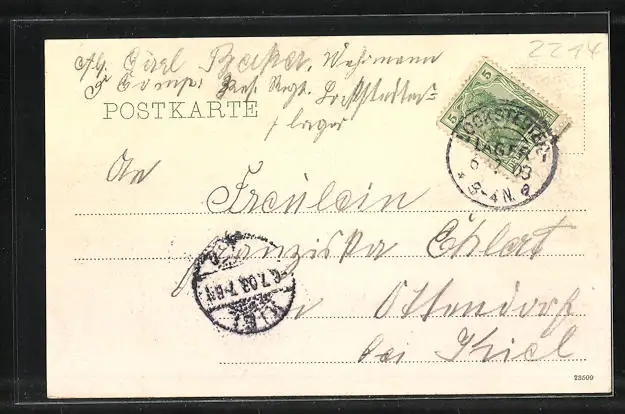 2214
Abs. Carl Baker, Wehrmann
5 Comp. Res. Regt. Lockstedter=
lager
POSTKARTE
5
5
LOCKSTEDTER-
LAGER
6 7 03
3-4 N.
An
Fräulein
Franziska Ehlert
in Ottendorf
bei Kiel
KIEL
6.7.03.7-8N
23509